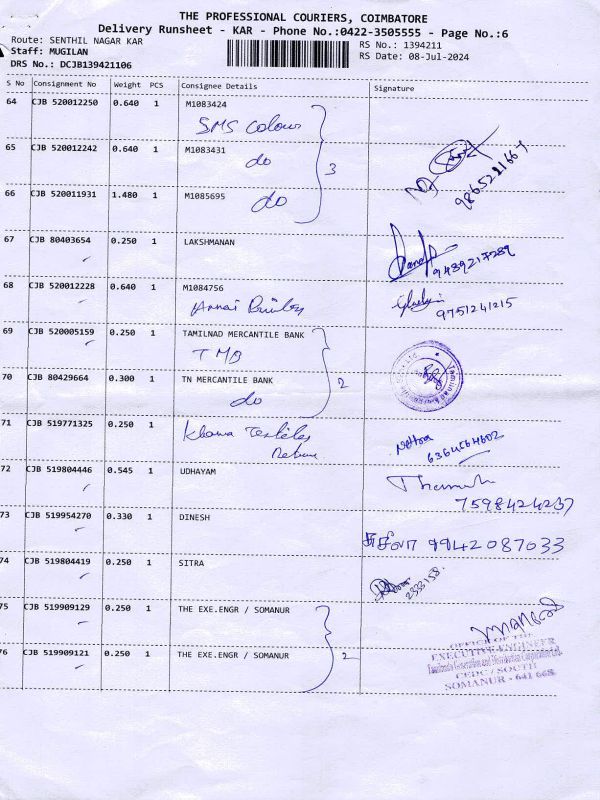 THE PROFESSIONAL COURIERS, COIMBATORE
Delivery Runsheet - KAR - Phone No.:0422-3505555 - Page No.:6
Route: SENTHIL NAGAR KAR
RS No.: 1394211
Staff: MUGILAN
RS Date: 08-Jul-2024
DRS No.: DCJB139421106
S No Consignment No Weight PCS Consignee Details Signature
64 CJB 520012250 0.640 1 M1083424
SMS Colour
65 CJB 520012242 0.640 1 M1083431
do
3
9865221664
66 CJB 520011931 1.480 1 M1085695
do
67 CJB 80403654 0.250 1 LAKSHMANAN
9489217289
68 CJB 520012228 0.640 1 M1084756
9751241215
69 CJB 520005159 0.250 1 TAMILNAD MERCANTILE BANK
TMB
70 CJB 80429664 0.300 1 TN MERCANTILE BANK
2
do
71 CJB 519771325 0.250 1
Nethra
6364564602
72 CJB 519804446 0.545 1 UDHAYAM
7598424237
73 CJB 519954270 0.330 1 DINESH
9942087033
74 CJB 519804419 0.250 1 SITRA
2333158
75 CJB 519909129 0.250 1 THE EXE.ENGR / SOMANUR
76 CJB 519909121 0.250 1 THE EXE.ENGR / SOMANUR
2
OFFICE OF THE
EXECUTIVE ENGINEER
CEDC / SOUTH
SOMANUR - 641 668